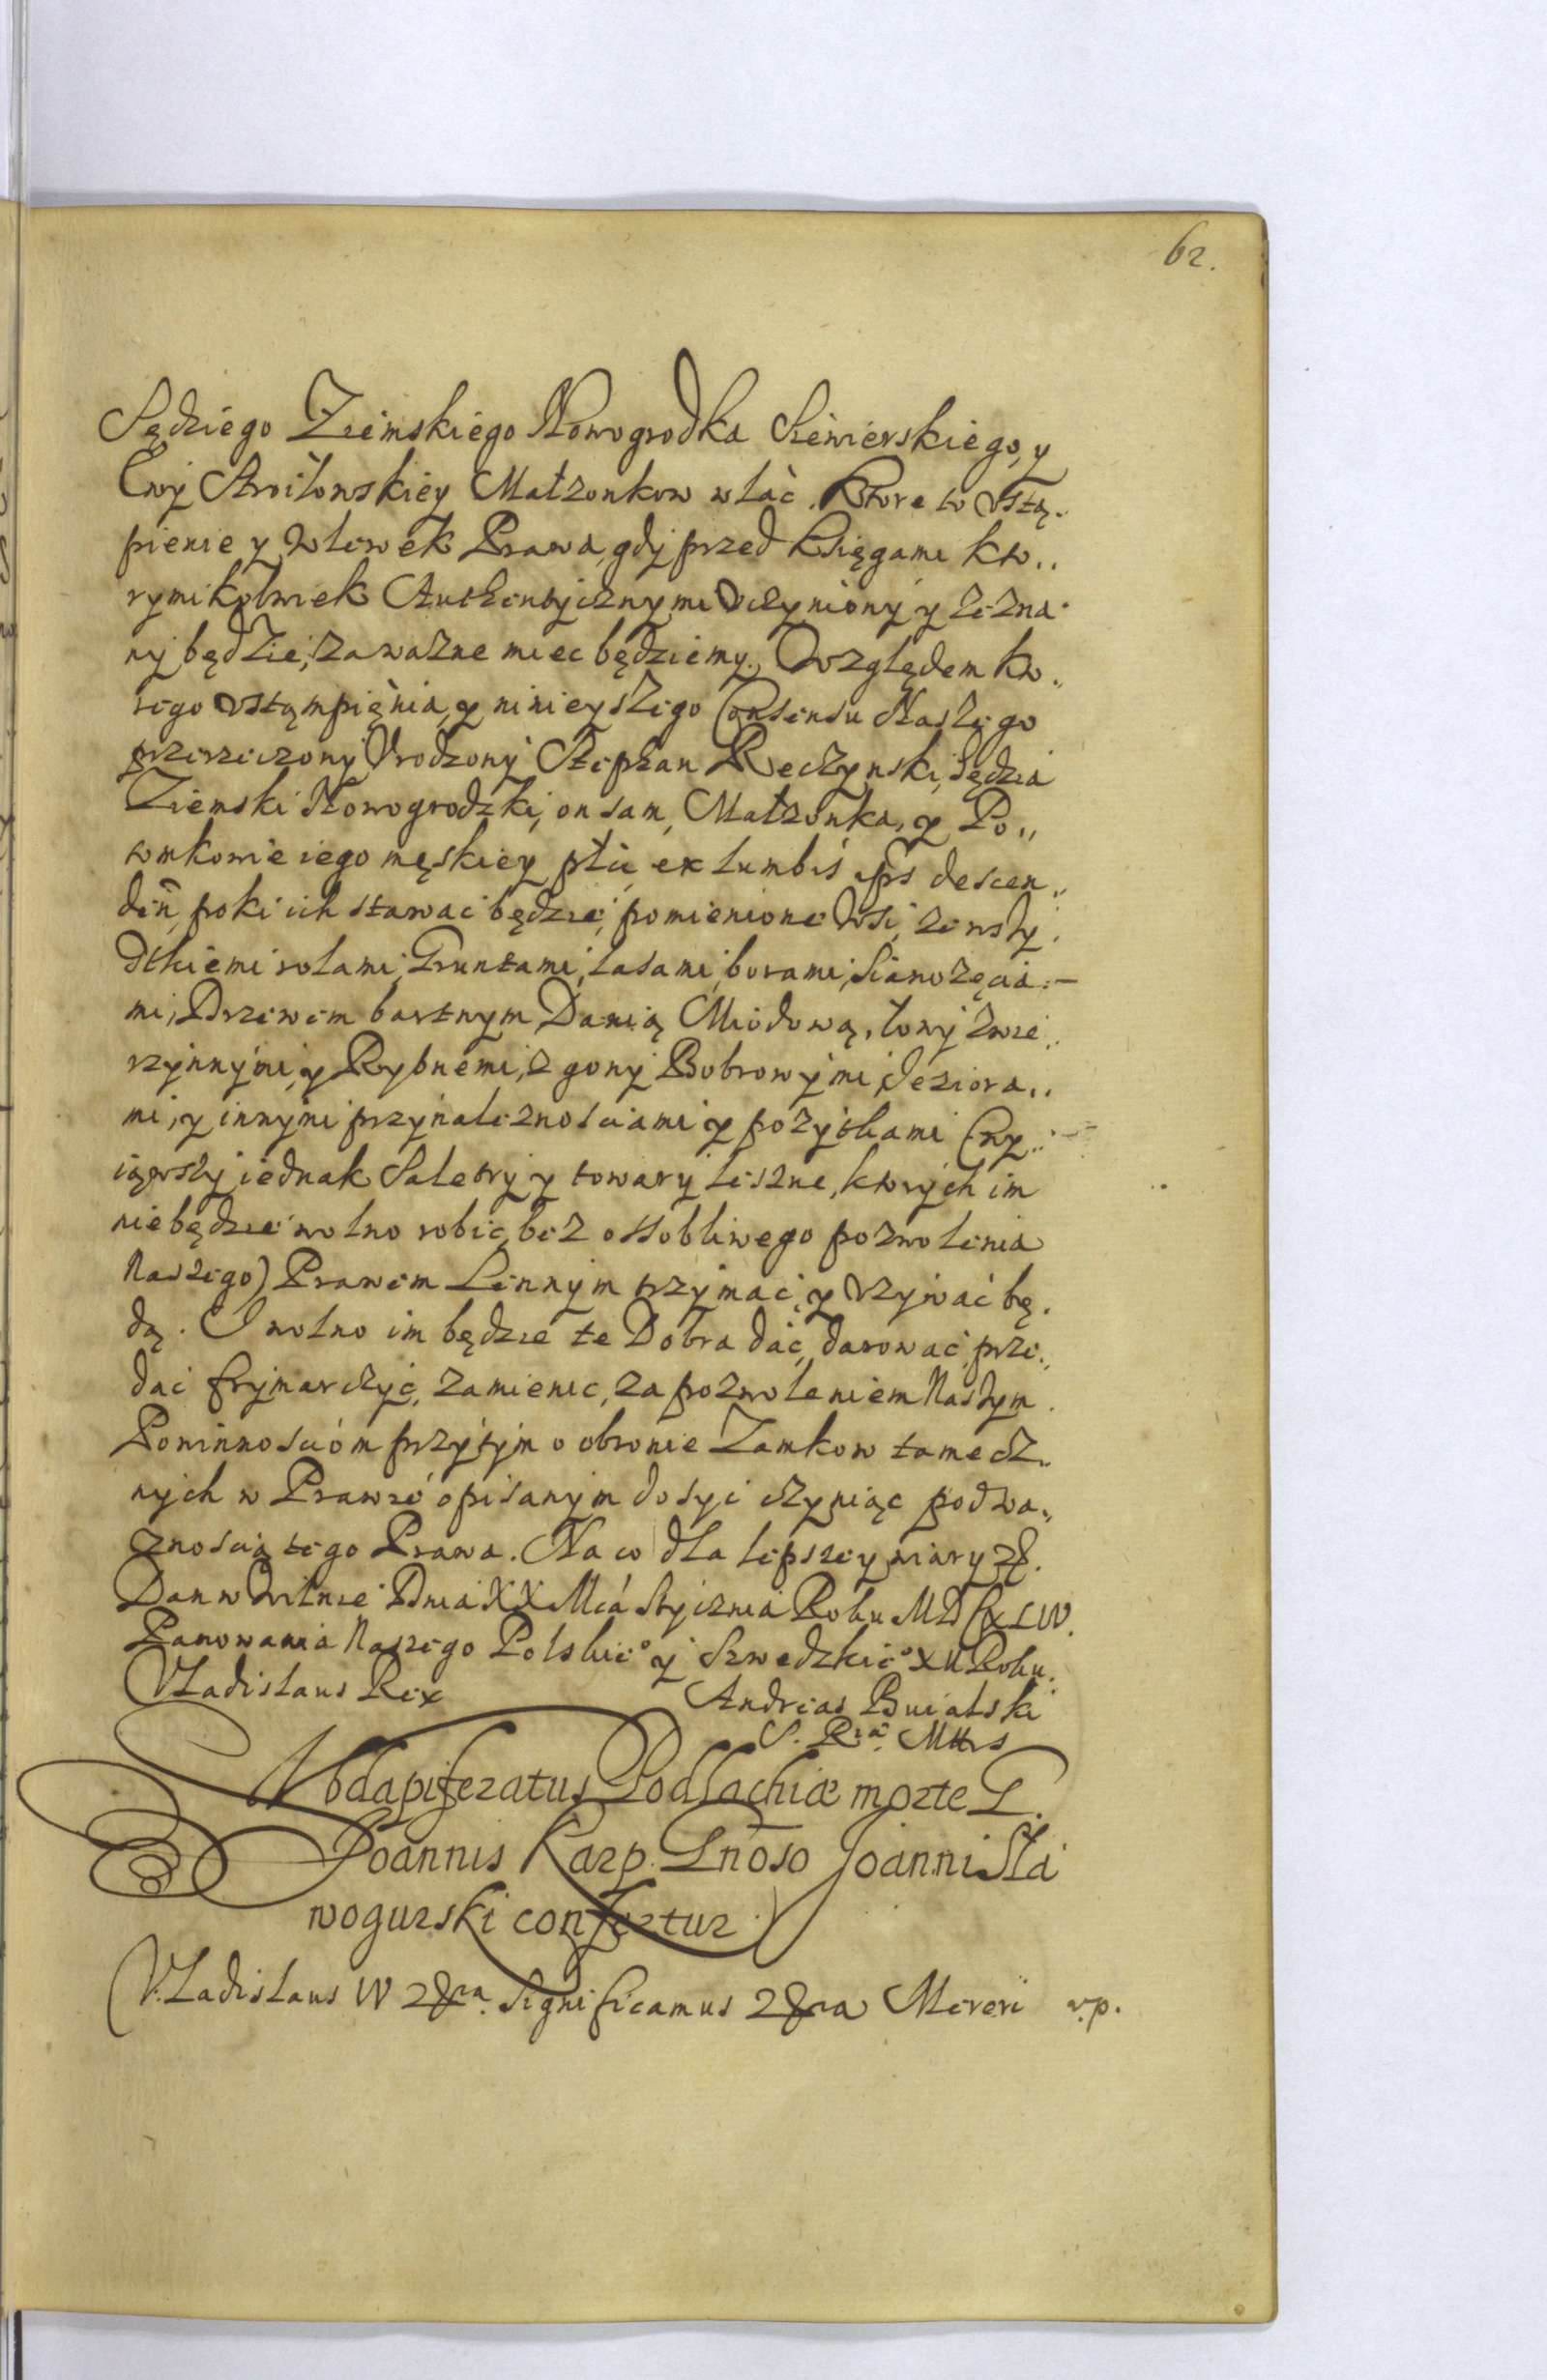 62.
Sędziego Ziemskiego Nowogrodka Siewierskiego, y
Ewy Stroiłowskiey Małzonkow wlac. Ktore to Vstą-
pienie y wlewek Prawa, gdy przed Księgami kto,,
rymikolwiek Authentycznymi Vczyniony y zezna-
ny będzie, za wazne miec będziemy. Względem kto,,
rego vstąmpięnia, y ninieyszego Consensu Naszego
przerzeczony Vrodzony Stephan Reczynski, Sędzia
Ziemski Nowogrodzki, on sam, Małzonka, y Po,,
tomkowie iego męskiey płci, ex lumbis ips descen,,
den, poki ich stawac będzie, pomienione Wsi, ze wszy.
dtkiemi rolami, Gruntami, lasami, borami, Sianozęcia:-
mi, Drzewem bartnym Danią Miodową, łowy zwie,,
rzynnymi, y Rybnemi, z gony Bobrowymi, Jeziora,,
mi, y innymi przynaleznosciami y pozytkami (wy,,
iąwszy iednak Saletry y towary leszne, ktorych im
niebędzie wolno robic, bez ossobliwego pozwolenia
Naszego) Prawem Lennym trzymac, y Vzywac bę.
dą. I wolno im będzie te Dobra dac, darowac, prze,,
dac frymarczyc, zamienic, za pozwoleniem Naszym.
Powinnosciom przytym o obronie Zamkow tamecz,,
nych w Prawie opisanym dosyc czyniąc pod wa,,
znoscią tego Prawa. Na co dla lepszey wiary etc.
Dan w Wilnie Dnia XX Mca Stycznia Roku MDCXLIV.
Panowania Naszego Polskieo y Szwedzkieo XII Roku.
Vladislaus Rex Andreas Buialski
S. Ra. Mttis
Vbdapiferatus Podlachiæ morte G.
Joannis Karp. Gnoso Joanni Sta
wogurski confertur
Vladislaus IV etcra. Significamus etcra Mereri v.p.